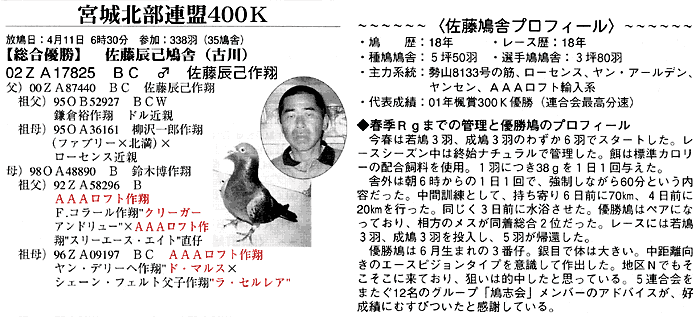 宮城北部連盟400K
放鳩日：4月11日 6時30分 参加：338羽（35鳩舎）
【総合優勝】 佐藤辰己鳩舎（古川）
02ZA17825 BC ♂ 佐藤辰己作翔
父）00ZA87440 BC 佐藤辰己作翔
祖父）95OB52927 BCW
鎌倉裕作翔 ドル近親
祖母）95OA36161 柳沢一郎作翔
（ファブリー×北満）×
ローセンス近親
母）98OA48890 B 鈴木博作翔
祖父）92ZA58296 B
AAAロフト作翔
F．コラール作翔"クリーガー
アンドリュー"×AAAロフト作
翔"スリーエース・エイト"直仔
祖母）96ZA09197 BC AAAロフト作翔
ヤン・デリーヘ作翔"ド・マルス"×
シェーン・フェルト父子作翔"ラ・セルレア"
～～～～～～〈佐藤鳩舎プロフィール〉～～～～～～
・鳩 歴：18年 ・レース歴：18年
・種鳩鳩舎：5坪50羽 ・選手鳩鳩舎：3坪80羽
・主力系統：勢山8133号の筋、ローセンス、ヤン・アールデン、
ヤンセン、AAAロフト輸入系
・代表成績：01年楓賞300K優勝（連合会最高分速）
◆春季Rgまでの管理と優勝鳩のプロフィール
今春は若鳩3羽、成鳩3羽のわずか6羽でスタートした。レ
ースシーズン中は終始ナチュラルで管理した。餌は標準カロリ
ーの配合飼料を使用。1羽につき38gを1日1回与えた。
舎外は朝6時からの1日1回で、強制しながら60分という内
容だった。中間訓練として、持ち寄り6日前に70km、4日前に
20kmを行った。同じく3日前に水浴させた。優勝鳩はペアにな
っており、相方のメスが同着総合2位だった。レースには若鳩
3羽、成鳩3羽を投入し、5羽が帰還した。
優勝鳩は6月生まれの3番仔。銀目で体は大きい。中距離向
きのエースピジョンタイプを意識して作出した。地区Nでもそ
こそこに来ており、狙いは的中したと思っている。5連合会を
またぐ12名のグループ「鳩志会」メンバーのアドバイスが、好
成績にむすびついたと感謝している。